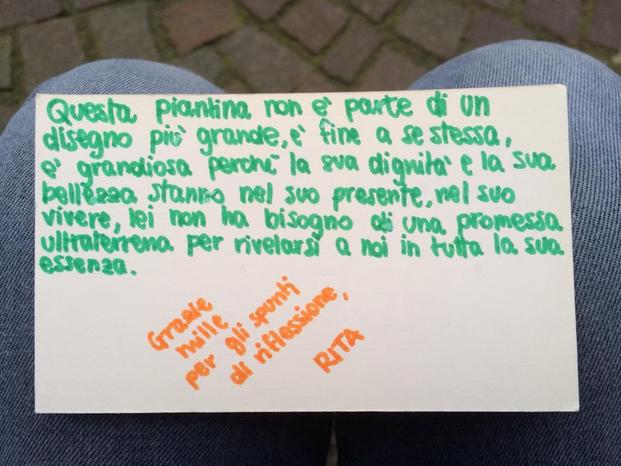 Questa piantina non è parte di un
disegno più grande, è fine a se stessa,
è grandiosa perchè la sua dignità e la sua
bellezza stanno nel suo presente, nel suo
vivere, lei non ha bisogno di una promessa
ultraterrena per rivelarsi a noi in tutta la sua
essenza.
Grazie
mille
per gli spunti
di riflessione,
RITA